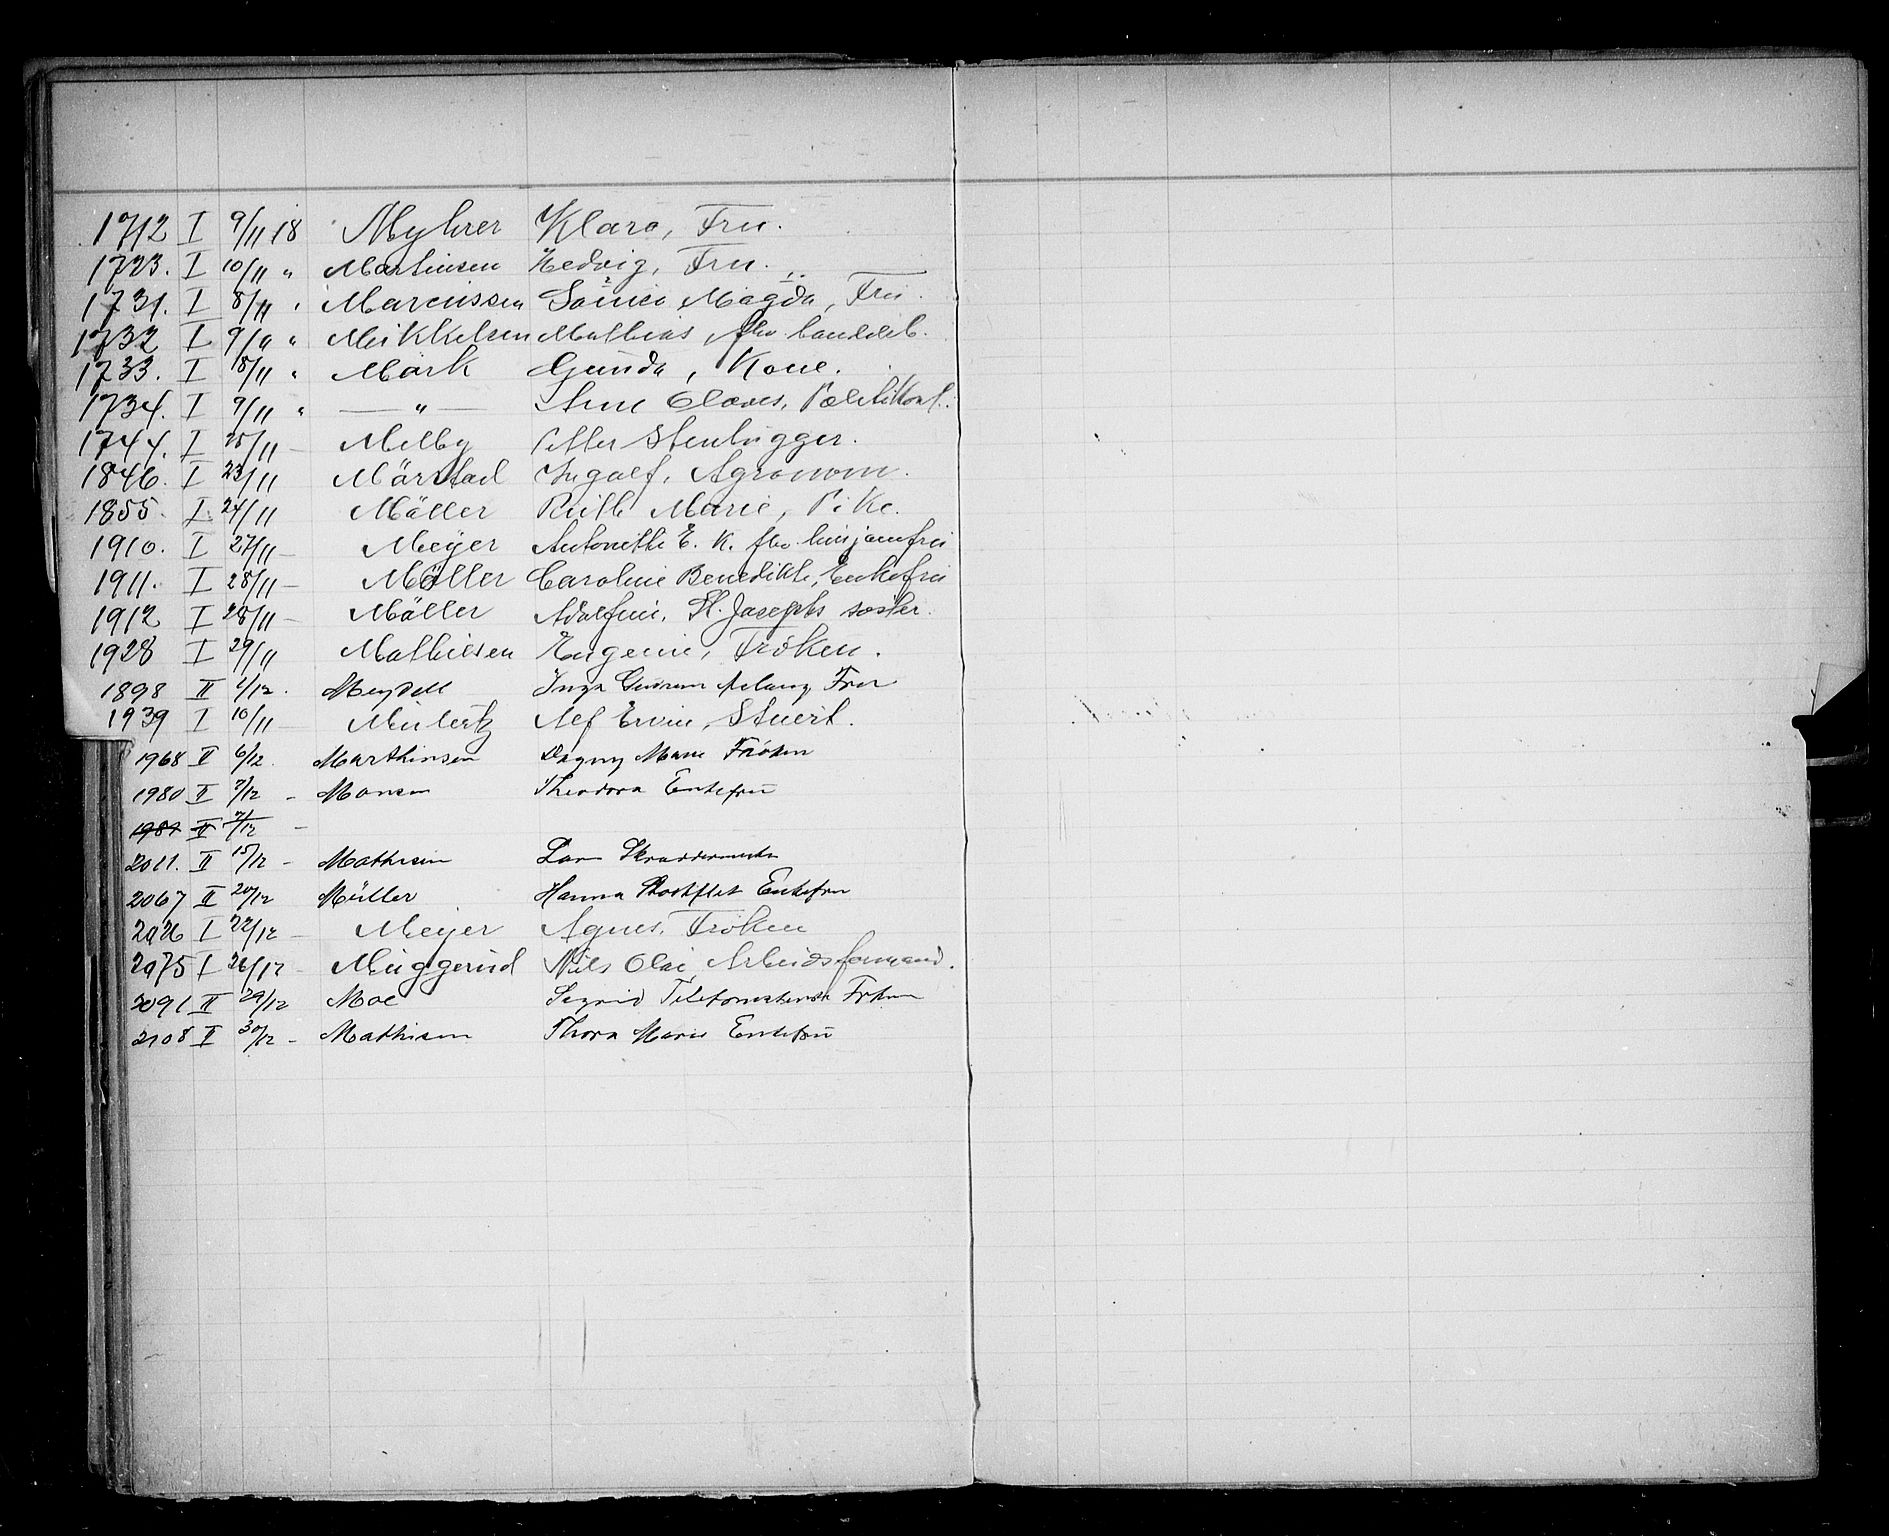 1712 I 9/11 18 Myhrer Klara, Fru.
1723. I 10/11 " Martinsen Hedvig, Fru.
1731. I 8/11 " Marcussen Magda, Fru.
1732 I 9/11 " Mikkelsen Mathias
1733. I 18/11 " Mark Gunda, Kone.
1734. I 9/11 " —"— Arne Olaves, Politikonst.
1744. I 25/11 — Melby Petter Stenhugger.
1846. I 23/11 Mårstad Ingolf, Agronom.
1855. I 24/11 Möller Ruth Marie, Pike.
1910. I 27/11 — Meyer Antonette E. K. fhv. husjomfru
1911. I 28/11 — Möller Caroline Benedikte, Enkefru
1912 I 28/11 — Möller Adolfine, St. Josephs søster.
1928 I 29/11 Mathiesen Eugenie, Fröken.
1898 II 1/12. Meydell Inga Gunvor Fru
1939 I 10/11 Alf Ervin, Stuert.
1968 II 6/12. Marthinsen Dagny Marie Frøken
1980 II 7/12 — Monsen Theodora Enkefru
1989 II 7/12 —
2011. II 15/12 — Mathisen Lars Skræddermester
2067 II 20/12 Müller Hanna Enkefru
2026 I 22/12 — Meijer Agnes, Fröken
2075 I 26/12 — Muggerud Nils Olai, Arbeidsformand.
2091 II 29/12 Moe Sigrid Telefonistinde Frøken
2108 II 30/12 — Mathisen Thora Marie Enkefru